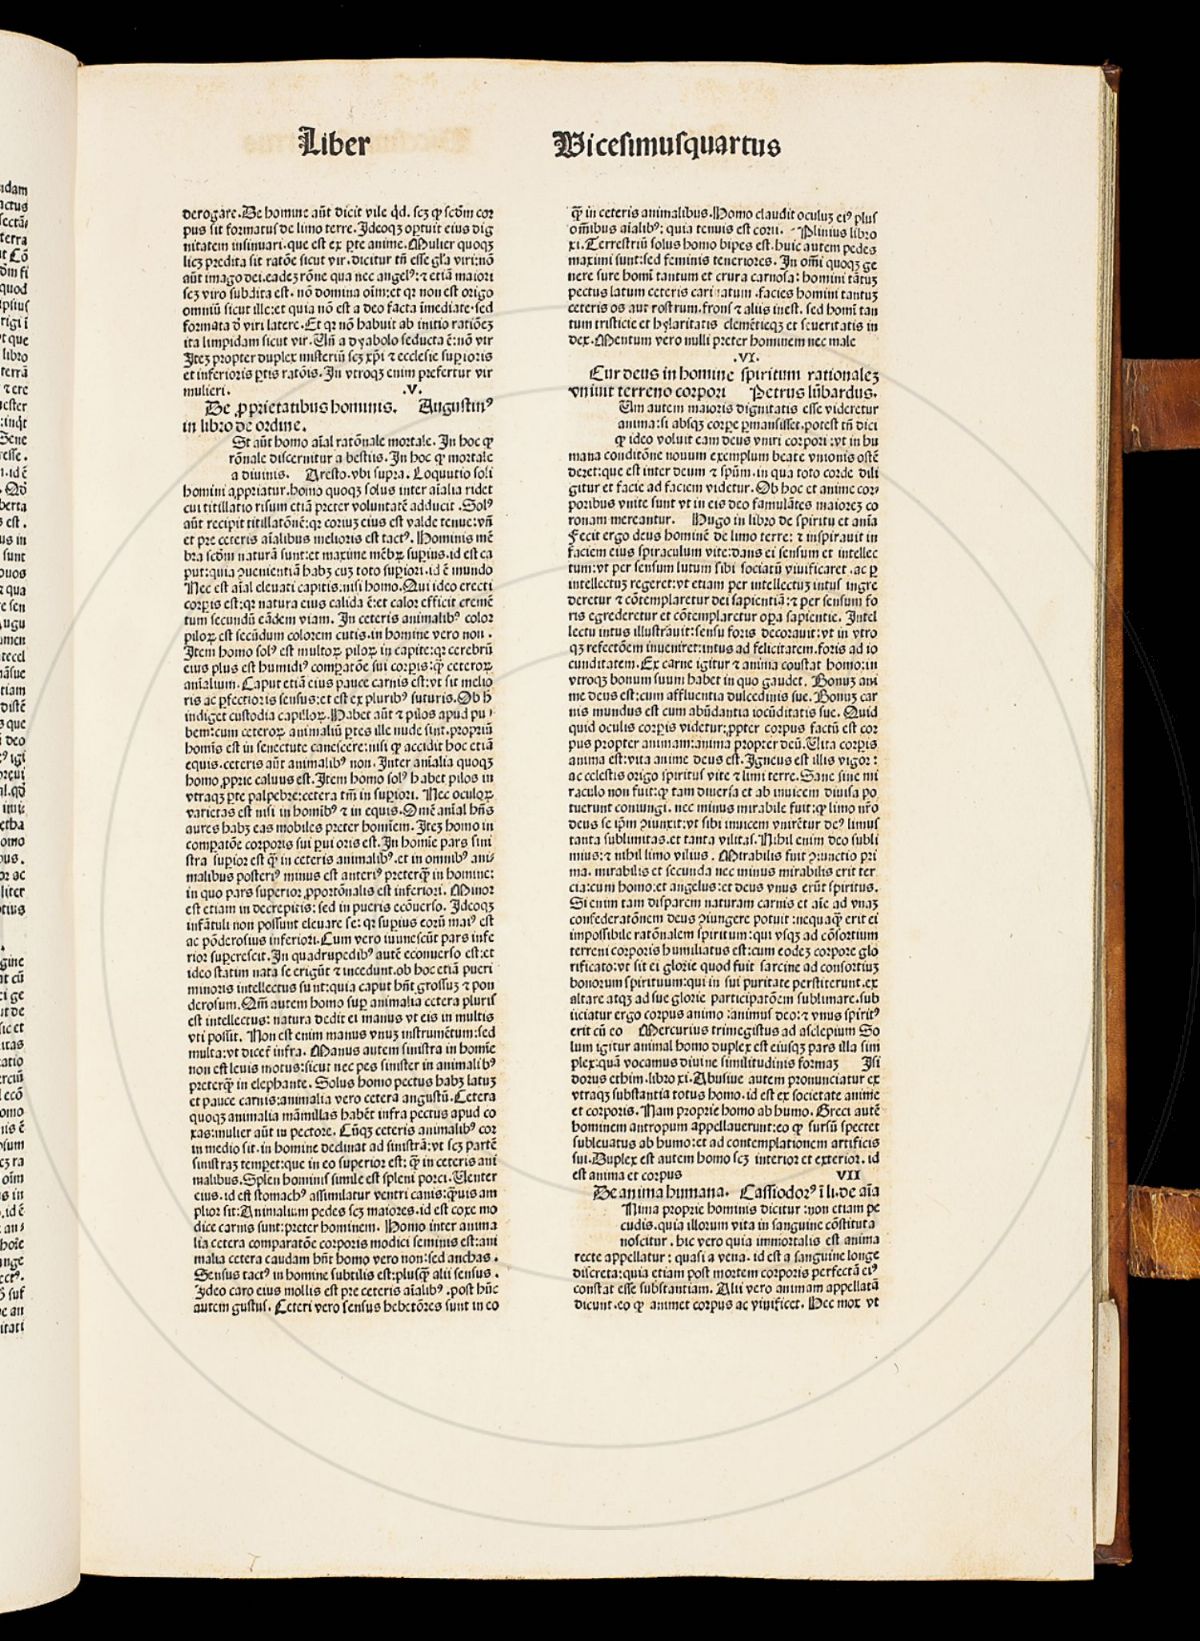 Liber Vicesimusquartus
derogare. De homine aūt dicit vile q̇d. scꝫ ꝙ scḋm cor
pus sit formatus de limo terre. Ideoqꝫ oꝑtuit eius dig
nitatem insinuari. que est ex ꝑte anime. Mulier quoqꝫ
licꝫ predita sit ratōe sicut vir. dicitur tn̄ esse gl̄a viri: nō
aūt imago dei. eadeꝫ rōne qua nec angelꝰ: ⁊ etiā maiori
scꝫ viro subdita est. nō domina oīm: et qꝛ non est origo
omniū sicut ille: et quia nō est a deo facta īmediate. sed
formata ď viri latere. Et qꝛ nō habuit ab initio ratiōeꝫ
ita limpidam sicut vir. Vn̄ a dyabolo seducta ē: nō vir
Iteꝫ propter duplex misteriū scꝫ xp̄i ⁊ ecclesie suꝑioris
et inferioris ꝑtis ratōis. In vtroqꝫ enim prefertur vir
mulieri. .V.
De ꝓprietatibus hominis. Augustinꝰ
in libro de ordine.
St aūt homo aīal ratōnale mortale. In hoc ꝙ
rōnale discernitur a bestiis. In hoc ꝙ mortale
a diuinis. Aresto. vbi supra. Loquutio soli
homini appriatur. homo quoqꝫ solus inter aīalia ridet
cui titillatio risum etiā preter voluntatē adducit. Solꝰ
aūt recipit titillatōnē: qꝛ coriuꝫ eius est valde tenue: vn̄
et pre ceteris aīalibus melioris est tactꝰ. Hominis mē
bra scḋm naturā sunt: et maxime mēbꝝ suꝑius. id est ca
put: quia ꝯuenientiā habꝫ cuꝫ toto suꝑiori. id ē mundo
Nec est aīal eleuati capitis: nisi homo. Qui ideo erecti
corꝑis est: qꝛ natura eius calida ē: et calor efficit cremē
tum secundū eādem viam. In ceteris animalibꝰ color
piloꝝ est secūdum colorem cutis. in homine vero non.
Item homo solꝰ est multoꝝ piloꝝ in capite: qꝛ cerebrū
eius plus est humidiꝰ comꝑatōe sui corꝑis: ꝙ̄ ceteroꝝ
aīalium. Caput etiā eius pauce carnis est: vt sit melio
ris ac ꝑfectioris sensus: et est ex pluribꝰ suturis. Ob h̄
indiget custodia capilloꝝ. Habet aūt ⁊ pilos apud pu
bem: cum ceteroꝝ animaliū ꝑtes ille nude sint. ꝓpriū
homīs est in senectute canescere: nisi ꝙ accidit hoc etiā
equis. ceteris aūt animalibꝰ non. Inter aīalia quoqꝫ
homo ꝓprie caluus est. Item homo solꝰ habet pilos in
vtraqꝫ ꝑte palpebre: cetera tm̄ in suꝑiori. Nec oculoꝝ
varietas est nisi in homībꝰ ⁊ in equis. Omē aīal hn̄s
aures habꝫ eas mobiles preter homīem. Iteꝫ homo in
comꝑatōe corporis sui pui oris est. In homīe pars sini
stra suꝑior est ꝙ̄ in ceteris animalibꝰ. et in omnibꝰ ani
malibus posteriꝰ minus est anteriꝰ preterꝙ̄ in homine:
in quo pars superior ꝓportōnalis est inferiori. Minor
est etiam in decrepitis: sed in pueris ecōuerso. Ideoqꝫ
infātuli non possunt eleuare se: qꝛ suꝑius eorū maiꝰ est
ac pōderosius inferiori. Cum vero iuuenescūt pars infe
rior suꝑcrescit. In quadrupedibꝰ autē econuerso est: et
ideo statim nata se erigūt ⁊ incedunt. ob hoc etiā pueri
minoris intellectus sunt: quia caput hn̄t grossuꝫ ⁊ pon
derosum. Qm̄ autem homo suꝑ animalia cetera pluris
est intellectus: natura dedit ei manus vt eis in multis
vti possit. Non est enim manus vnuꝫ instrumētum: sed
multa: vt dicet̄ infra. Manus autem sinistra in homīe
non est leuis motus: sicut nec pes sinister in animalibꝰ
preterꝙ̄ in elephante. Solus homo pectus habꝫ latuꝫ
et pauce carnis: animalia vero cetera angustū. Cetera
quoqꝫ animalia māmillas habēt infra pectus apud co
xas: mulier aūt in pectore. Cūqꝫ ceteris animalibꝰ cor
in medio sit. in homine declinat ad sinistrā: vt scꝫ partē
sinistraꝫ temꝑet: que in eo superior est: ꝙ̄ in ceteris ani
malibus. Splen hominis simile est spleni porci. Uenter
eius. id est stomachꝰ assimilatur ventri canis: ꝙ̄uis am
plior sit: Animalium pedes scꝫ maiores. id est coxe mo
dice carnis sunt: preter hominem. Homo inter anima
lia cetera comparatōe corporis modici seminis est: ani
malia cetera caudam hn̄t homo vero non: sed anchas.
Sensus tactꝰ in homine subtilis est: plusꝙ̄ alii sensus.
Ideo caro eius mollis est pre ceteris aīalibꝰ. post hūc
autem gustus. Ceteri vero sensus hebetōres sunt in eo
ꝙ̄ in ceteris animalibus. Homo claudit oculuꝫ eiꝰ plus
om̄ibus aīalibꝰ: quia tenuis est corii. Plinius libro
xi. Terrestriū solus homo bipes est. huic autem pedes
maximi sunt: sed feminis teneriores. In om̄i quoqꝫ ge
nere sure homī tantum et crura carnosa: homini tātuꝫ
pectus latum ceteris carinatum. facies homini tantuꝫ
ceteris os aut rostrum. frons ⁊ aliis inest. sed homī tan
tum tristicie et hylaritatis clemētieqꝫ et seueritatis in
dex. Mentum vero nulli preter hominem nec male
.VI.
Cur deus in homine spiritum rationaleꝫ
vniuit terreno corpori Petrus lūbardus.
Um autem maioris dignitatis esse videretur
anima: si absqꝫ corꝑe ꝑmansisset. potest tn̄ dici
ꝙ ideo voluit eam deus vniri corpori: vt in hu
mana conditōne nouum exemplum beate vnionis ostē
deret: que est inter deum ⁊ spūm. in qua toto corde dili
gitur et facie ad faciem videtur. Ob hoc et anime cor
poribus vnite sunt vt in eis deo famulātes maioreꝫ co
ronam mereantur. Hugo in libro de spiritu et aīa
Fecit ergo deus hominē de limo terre: ⁊ inspirauit in
faciem eius spiraculum vite: dans ei sensum et intellec
tum: vt per sensum lutum sibi sociatū viuificaret. ac ꝑ
intellectuꝫ regeret: vt etiam per intellectuꝫ intus ingre
deretur ⁊ cōtemplaretur dei sapientiā: ⁊ per sensum fo
ris egrederetur et cōtemplaretur oꝑa sapientie. Intel
lectu intus illustrauit: sensu foris decorauit: vt in vtro
qꝫ refectōem inueniret: intus ad felicitatem. foris ad io
cunditatem. Ex carne igitur ⁊ anima constat homo: in
vtroqꝫ bonum suum habet in quo gaudet. Bonuꝫ ani
me deus est: cum affluentia dulcedinis sue. Bonuꝫ car
nis mundus est cum abūdantia iocūditatis sue. Quid
quid oculis corꝑis videtur: ꝓpter corpus factū est cor
pus propter animam: anima propter deū. Uita corꝑis
anima est: vita anime deus est. Igneus est illis vigor:
ac celestis origo spiritus vite ⁊ limi terre. Sane sine mi
raculo non fuit: ꝙ tam diuersa et ab inuicem diuisa po
tuerunt coniungi. nec minus mirabile fuit: ꝙ limo nr̄o
deus se ip̄m ꝯiunxit: vt sibi inuicem vnirētur deꝰ limus
tanta sublimitas. et tanta vilitas. Nihil enim deo subli
mius: ⁊ nihil limo vilius. Mirabilis fuit ꝯiunctio pri
ma. mirabilis et secunda nec minus mirabilis erit ter
cia: cum homo: et angelus: et deus vnus erūt spiritus.
Si enim tam disparem naturam carnis et aīe ad vnaꝫ
confederatōnem deus ꝯiungere potuit: nequaꝙ̄ erit ei
impossibile ratōnalem spiritum: qui vsqꝫ ad cōsortium
terreni corporis humiliatus est: cum eodeꝫ corpore glo
rificato: vt sit ei glorie quod fuit sarcine ad consortiuꝫ
bonorum spirituum: qui in sui puritate perstiterunt. ex
altare atqꝫ ad sue glorie participatōem sublimare. sub
iiciatur ergo corpus animo: animus deo: ⁊ vnus spiritꝰ
erit cū eo Mercurius trimegistus ad asclepium So
lum igitur animal homo duplex est eiusqꝫ pars illa sim
plex: quā vocamus diuine similitudinis formaꝫ Isi
dorus ethim. libro xi. Abusiue autem pronunciatur ex
vtraqꝫ substantia totus homo. id est ex societate anime
et corporis. Nam proprie homo ab humo. Greci autē
hominem antropum appellauerunt: eo ꝙ sursū spectet
subleuatus ab humo: et ad contemplationem artificis
sui. Duplex est autem homo scꝫ interior et exterior. id
est anima et corpus VII
De anima humana. Cassiodorꝰ ī li. de aīa
Nima proprie hominis dicitur: non etiam pe
cudis. quia illorum vita in sanguine cōstituta
noscitur. hic vero quia immortalis est anima
recte appellatur: quasi a vena. id est a sanguine longe
discreta: quia etiam post mortem corporis perfectā eiꝰ
constat esse substantiam. Alii vero animam appellatā
dicunt. eo ꝙ animet corpus ac viuificet. Hec mox vt